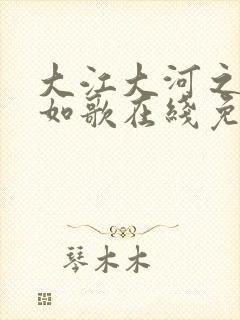 大江大河之
如歌在线免
琴木木